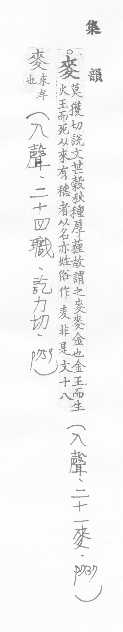 集韻
麥莫獲切說文芒穀秋種厚薶故謂之麥麥金也金王而生
火王而死从來有穗者从夊亦姓俗作麦非是文十八(入聲.二十一麥.p737)
麥來牟也(入聲.二十四職.訖力切.p759)